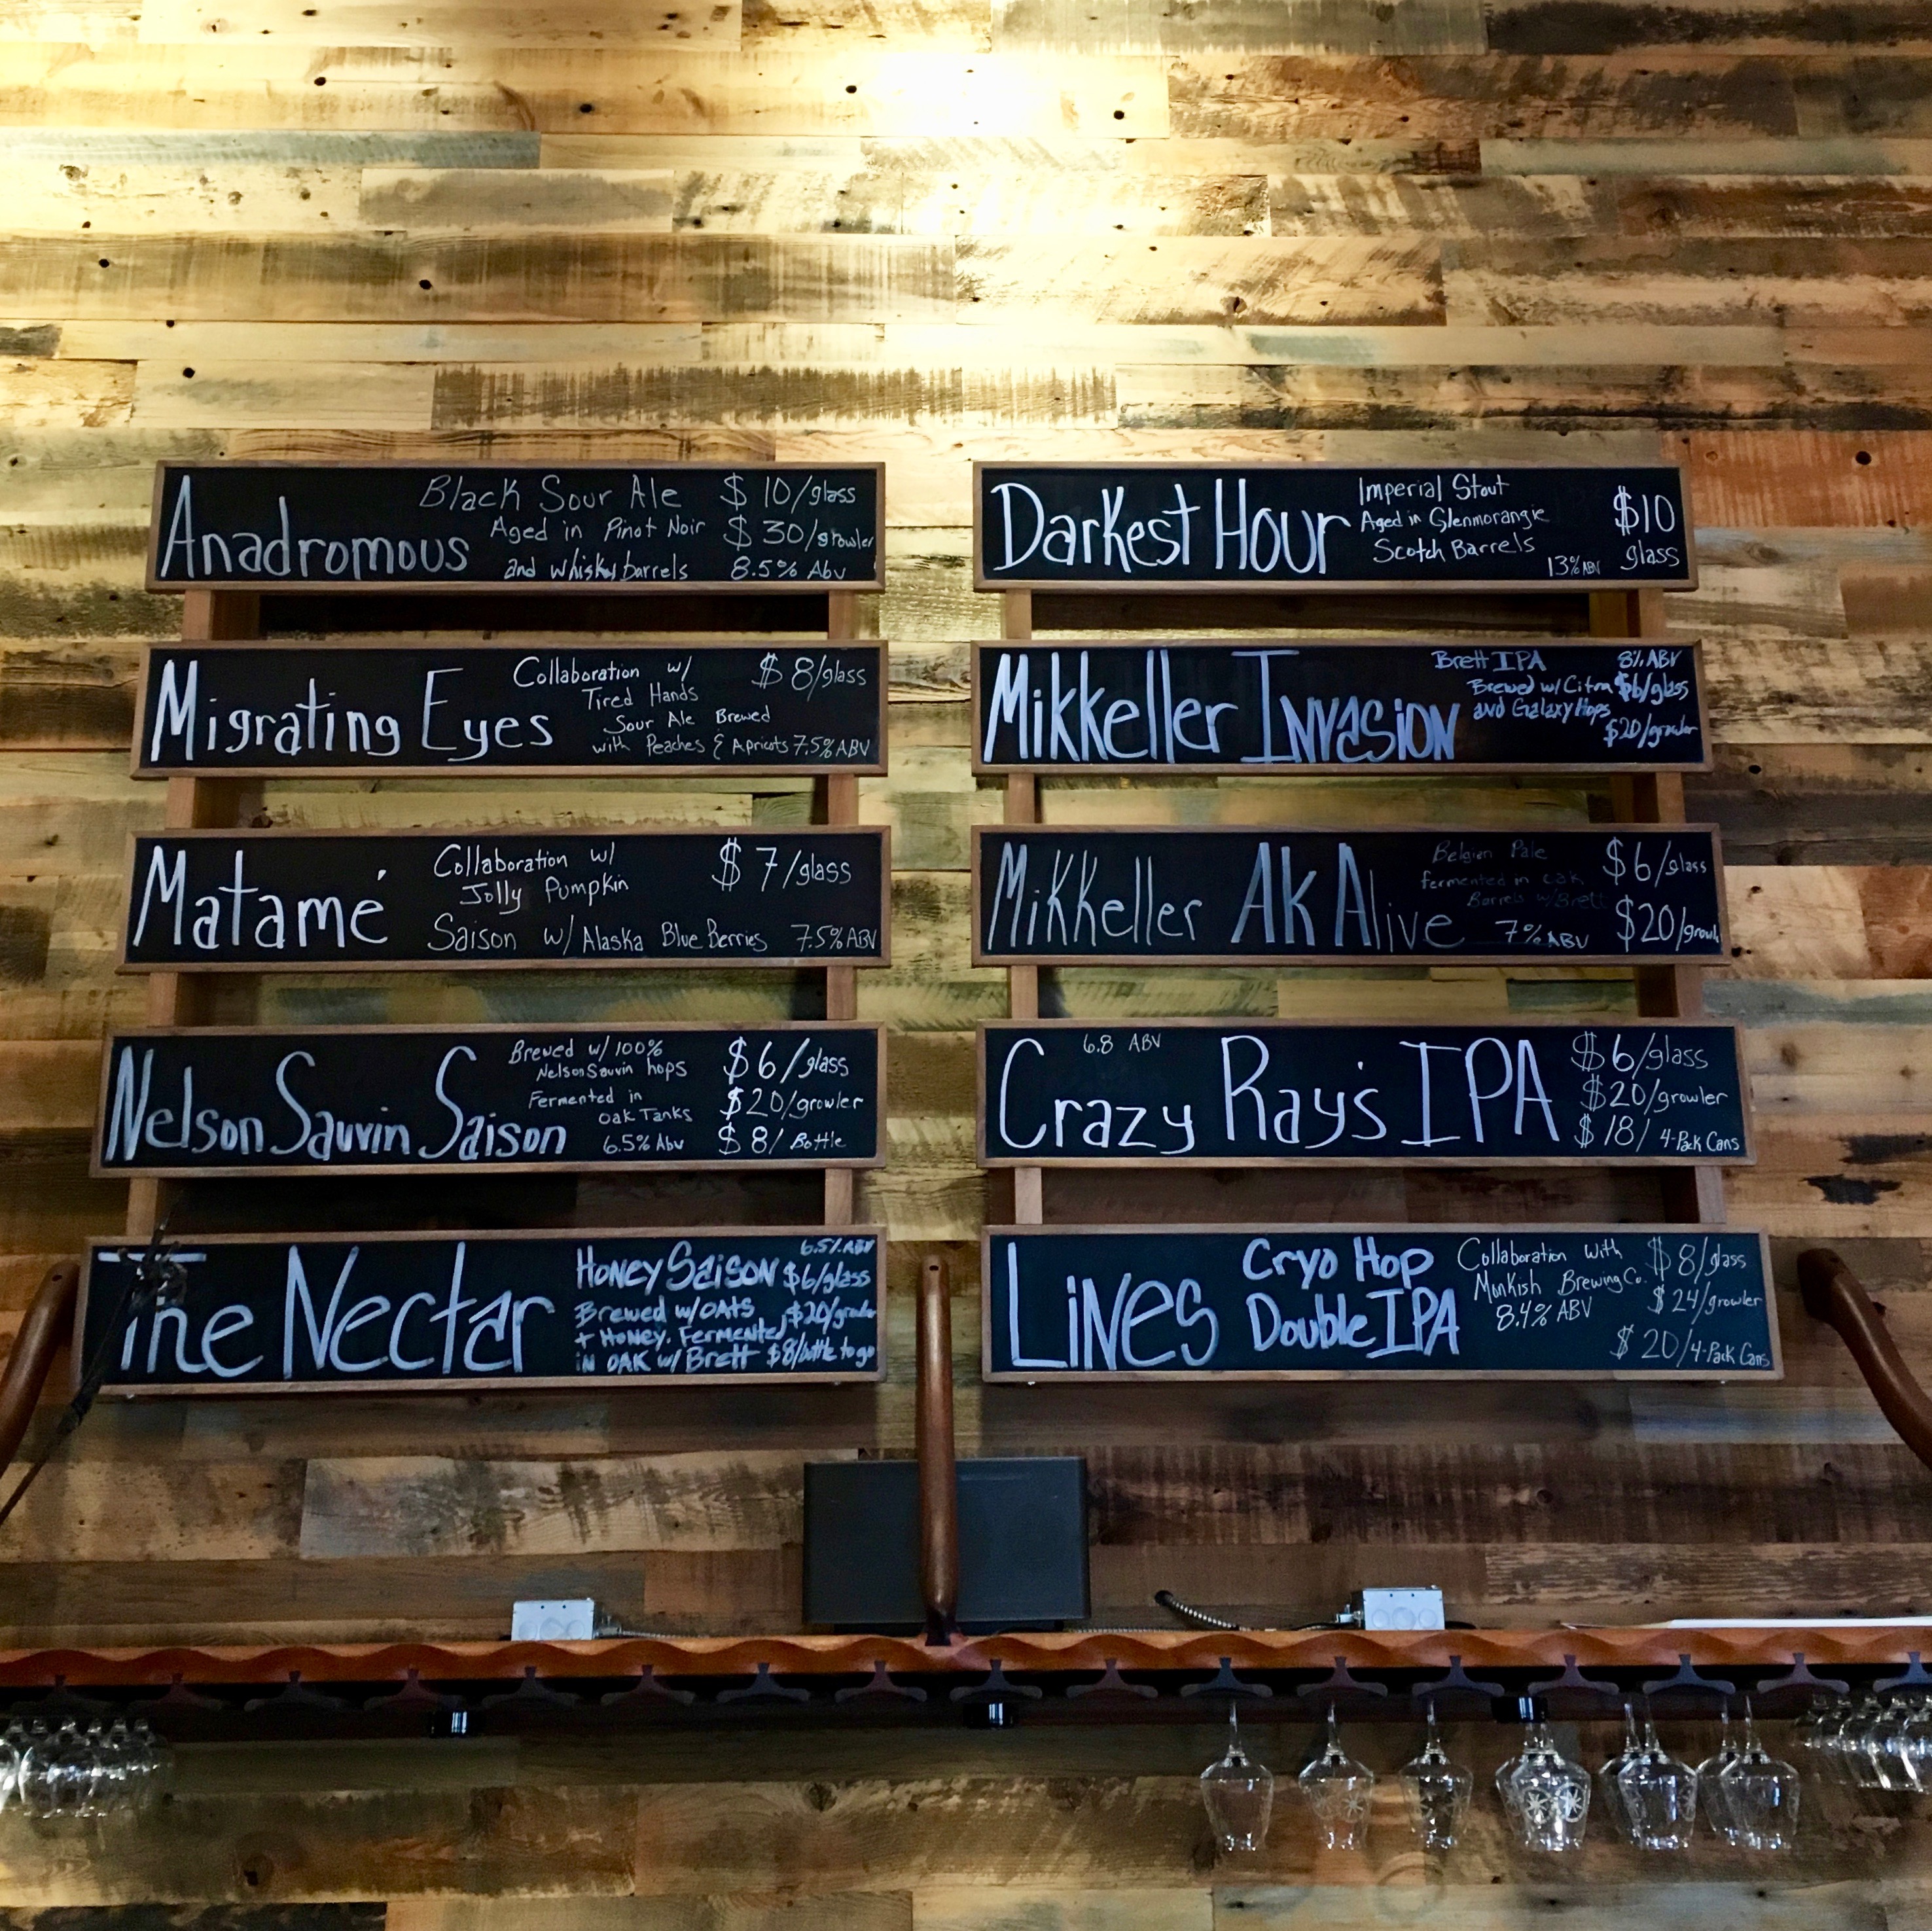 Anadromous
Black Sour Ale
Aged in Pinot Noir
and whiskey barrels
$10/glass
$30/growler
8.5% Abv
Migrating Eyes
Collaboration w/
Tired Hands
Sour Ale Brewed
with Peaches & Apricots 7.5% ABV
$8/glass
Matamé
Collaboration w/
Jolly Pumpkin
Saison w/ Alaska Blue Berries 7.5% ABV
$7/glass
Nelson Sauvin Saison
Brewed w/ 100%
Nelson Sauvin hops
Fermented in
Oak Tanks
6.5% Abv
$6/glass
$20/growler
$8/Bottle
The Nectar
6.5% ABV
Honey Saison $6/glass
Brewed w/ OATS $20/growler
+ Honey. Fermented
in OAK w/ Brett $8/bottle to go
Darkest Hour
Imperial Stout
Aged in Glenmorangie
Scotch Barrels
13% ABV
$10
glass
Mikkeller Invasion
Brett IPA 8% ABV
Brewed w/ Citra $6/glass
and Galaxy Hops
$20/growler
Mikkeller Ak Alive
Belgian Pale
fermented in oak
Barrels w/ Brett
7% ABV
$6/glass
$20/growl
Crazy Ray's IPA
6.8 ABV
$6/glass
$20/growler
$18/ 4-Pack Cans
Lines
Cryo Hop
Double IPA
Collaboration with
Monkish Brewing Co.
8.4% ABV
$8/glass
$24/growler
$20/4-Pack Cans